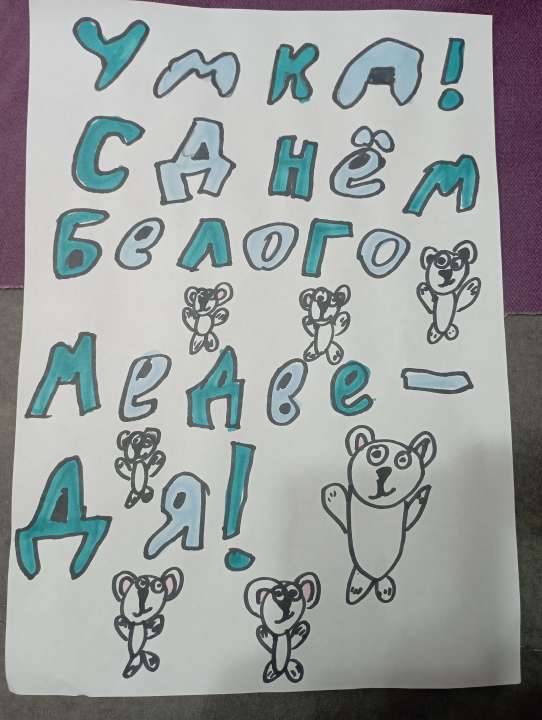 Умка!
С Днём
белого
медве-
дя!